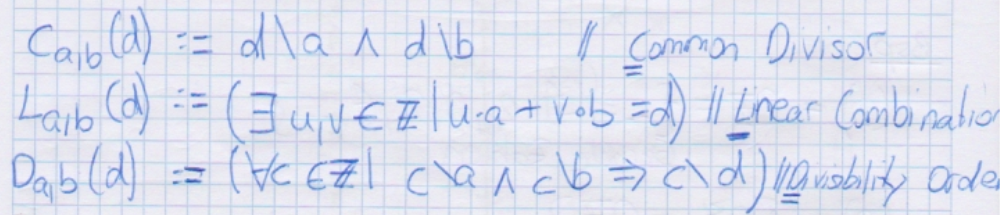 Ca,b(d) := d\a ∧ d\b // Common Divisor
La,b(d) := (∃ u,v ∈ ℤ | u·a + v·b = d) // Linear Combination
Da,b(d) := (∀c ∈ ℤ | c\a ∧ c\b ⇒ c\d) // Divisbility Order